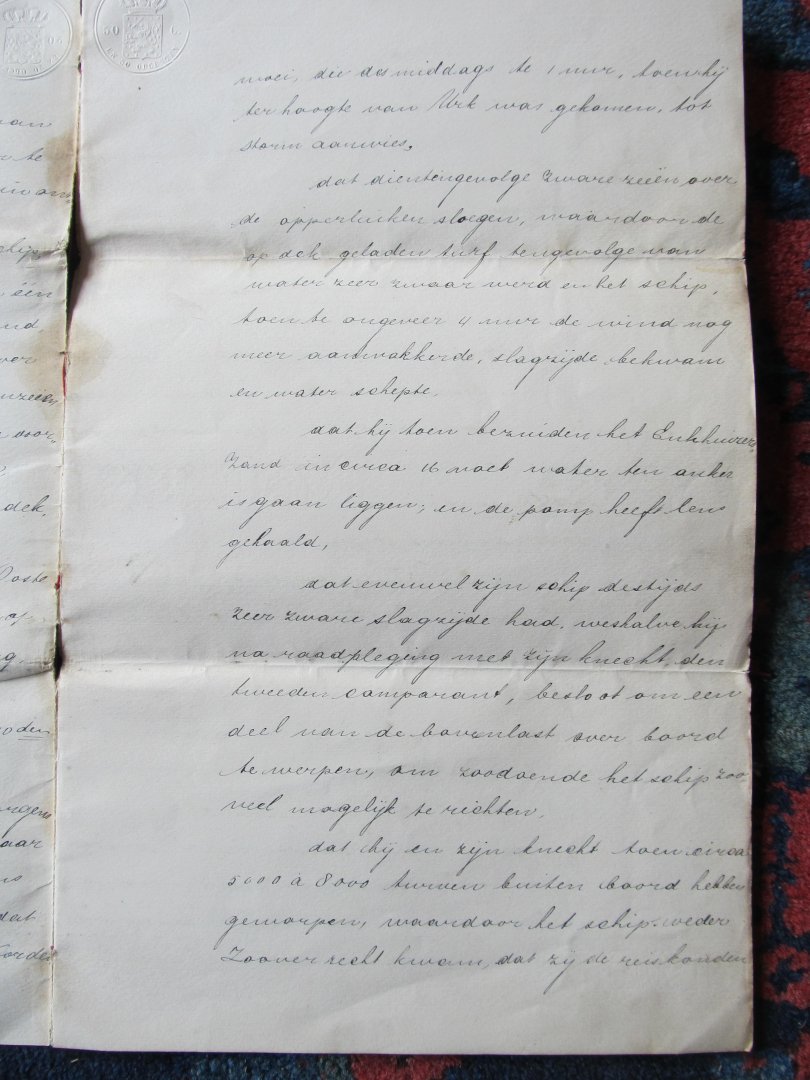 50 C.
woei, die des middags te 1 uur, toen hij
ter hoogte van Urk was gekomen, tot
storm aanwies,
dat dientengevolge zware zeeën over
de opperluiken sloegen, waardoor de
op dek geladen turf tengevolge van
water zeer zwaar werd en het schip,
toen te ongeveer 4 uur de wind nog
meer aanwakkerde, slagzijde bekwam
en water schepte,
dat hij toen bezuiden het Enkhuizer
Zand in circa 16 voet water ten anker
is gaan liggen, en de pomp heeft lens
gehaald,
dat evenwel zijn schip destijds
zeer zware slagzijde had, weshalve hij
na raadpleging met zijn knecht, den
tweeden comparant, besloot om een
deel van de bovenlast over boord
te werpen, om zoodoende het schip zoo
veel mogelijk te richten,
dat hij en zijn knecht toen circa
5000 à 8000 turven buiten boord hebben
geworpen, waardoor het schip weder
zoover recht kwam, dat zij de reis konden
van
te
één
over
door
dek,
oden
aar
dat